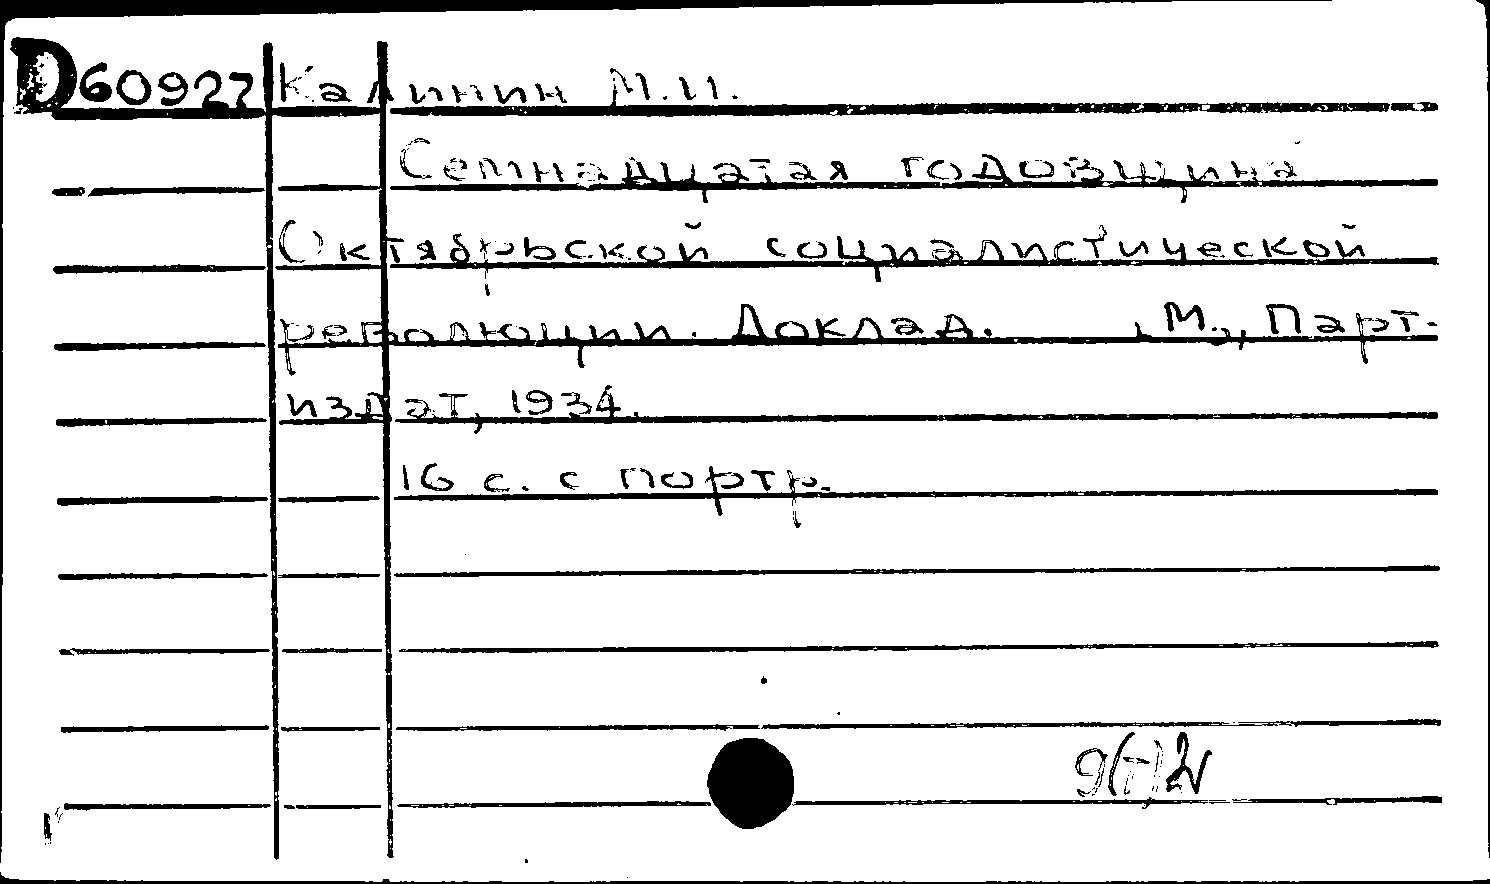 D60927 Калинин М.И.
Семнадцатая годовщина
Октябрьской социалистической
революции. Доклад. , М., Парт-
издат, 1934.
16 с. с портр.